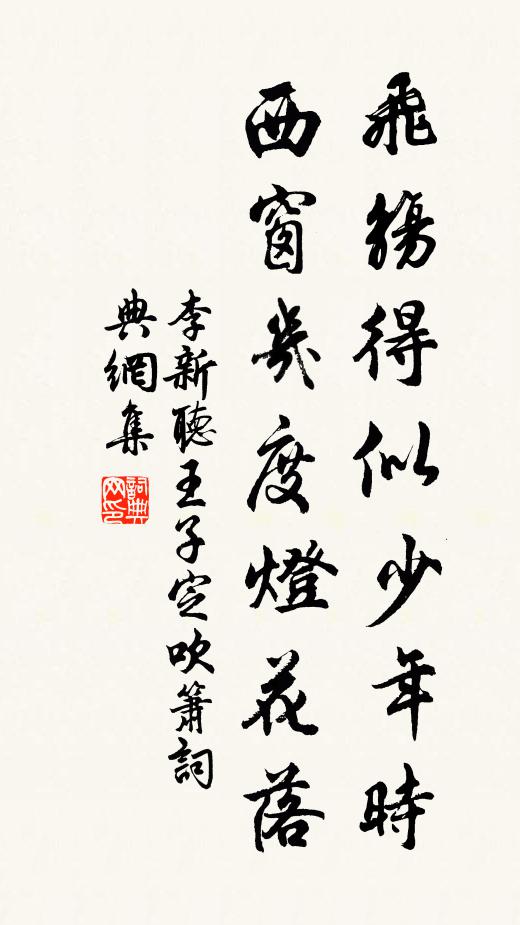 飛觴得似少年時
西窗幾度燈花落
李新聽王子定吹簫詞
典網集
詞典網印